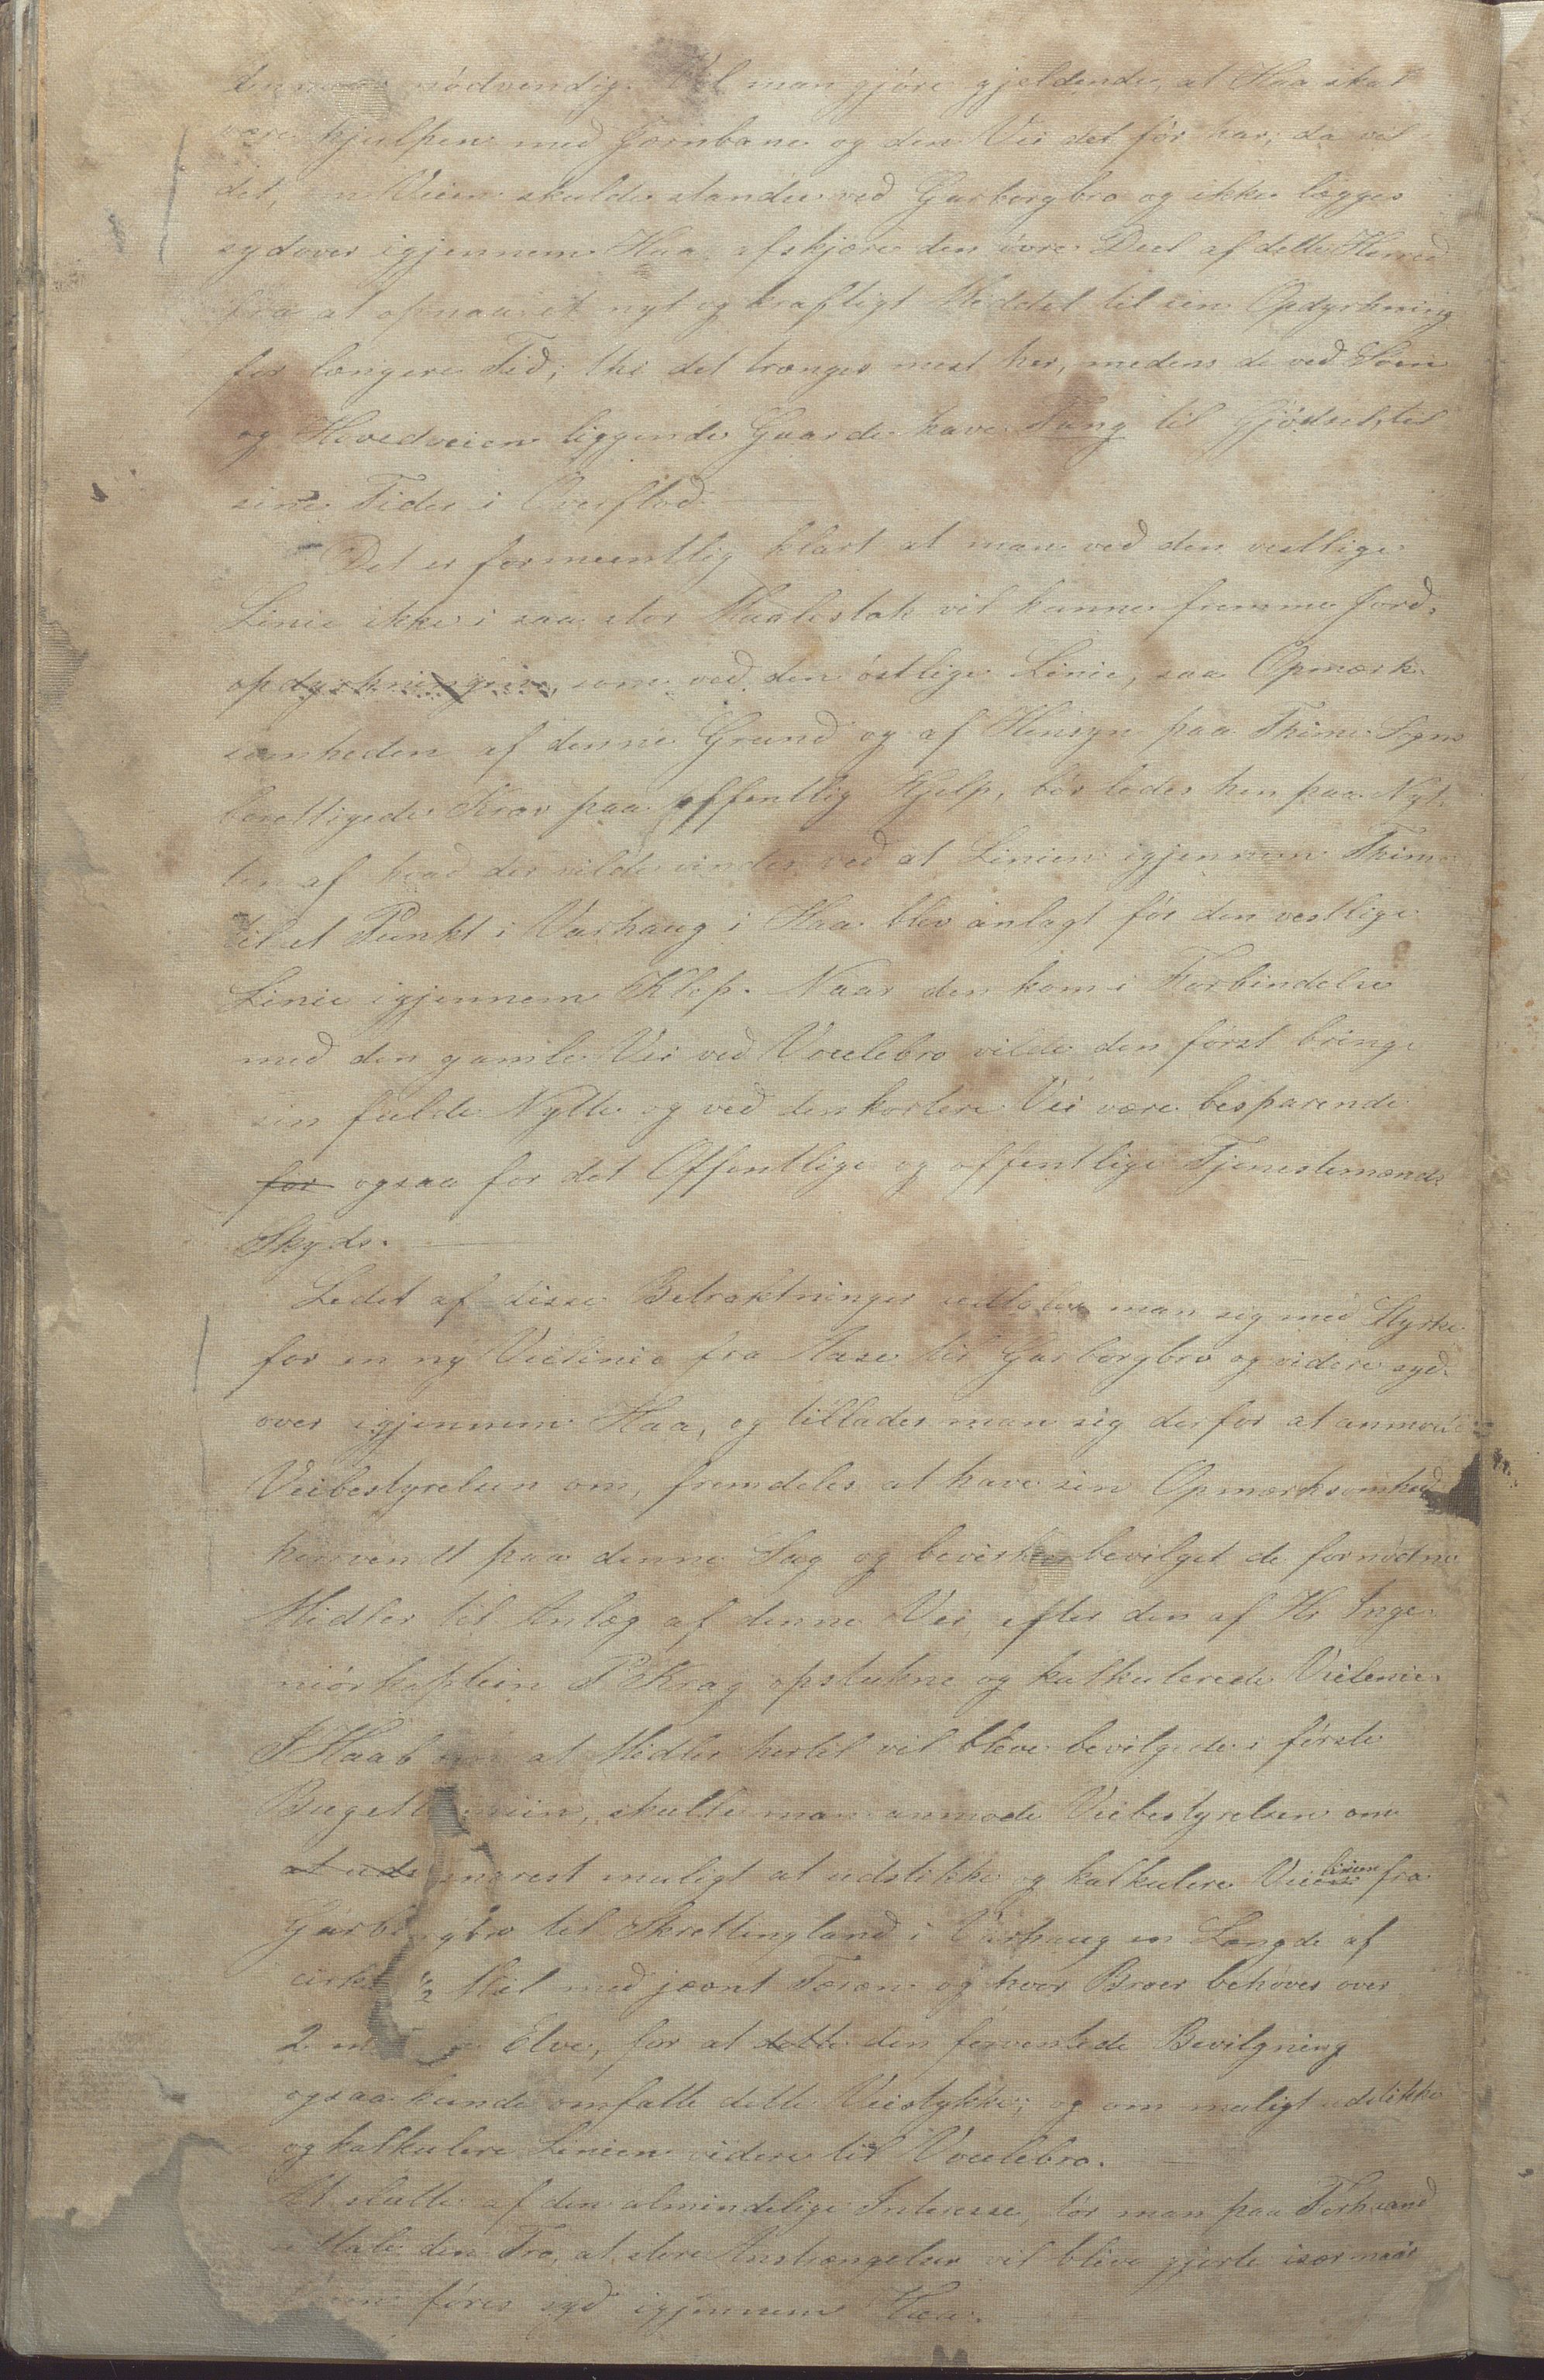 nödvendig. Vil man gjöre gjeldende, at Haa skal
være hjulpen med Jernbane og den Vei det för har, da vil
det, om Veien skulde standse ved Garborgbro og ikke lægges
sydover igjennem Haa afskjære den övre Deel af dette Herred
fra at opnaa et nyt og kraftigt Middel til sin Opdyrkning
for længere Tid; thi det trænges mest her, medens de ved Söen
og Hovedveien liggende Gaarde have Tang til Gjödsel, til
sine Tider i Overflod.
Det er formeentlig klart at man ved den vestlige
Linie ikke i saa stor Maalestok vil kunne fremme Jord-
opdyrkningen, som ved den östlige Linie, saa Opmærk-
somheden af denne Grund og af Hensyn paa Thime Sogns
berettigede Krav paa offentlig Hjelp, bör ledes hen paa Nyt-
ten af hvad der vilde vindes ved at Linien igjennem Thime
til et Punkt i Varhaug i Haa blev anlagt för den vestlige
Linie igjennem Klep. Naar den kom i Forbindelse
med den gamle Vei ved Voulebro vilde den först bringe
sin fulde Nytte og ved den kortere Vei være besparende
for ogsaa for det Offentlige og offentlige Tjenestemænds
Skyds.
Ledet af disse Betraktninger udtaler man sig med Styrke
for en ny Veilinie fra Aase til Garborgbro og videre syd-
over igjennem Haa, og tillader man sig derfor at anmode
Veibestyrelsen om, fremdeles at have sin Opmærksomhed
henvendt paa denne Sag og bevirke bevilget de fornödne
Midler til Anlæg af denne Vei efter den af Hr Inge-
niörkaptein P Krag opstukne og kalkulerede Veilinie.
I Haab om at Midler hertil vil blive bevilgede i förste
Buget, skulle man anmode Veibestyrelsen om
at uds snarest muligt at udstikke og kalkulere Veilinien fra
Garborgbro til Skretlingland i Varhaug en Længde af
cirka 1/2 Mil med jævnt Teræn og hvor Broer behöves over
2 Elve, for at dette den forventede Bevilgning
ogsaa kunde omfatte dette Veistykke; og om muligt udstikke
og kalkulere Linien videre til Voulebro.
At slutte af den almindelige Interesse, tör man paa Forhaand
udtale den Tro, at store Anstrængelser vil blive gjorte især naar
föres syd igjennem Haa.